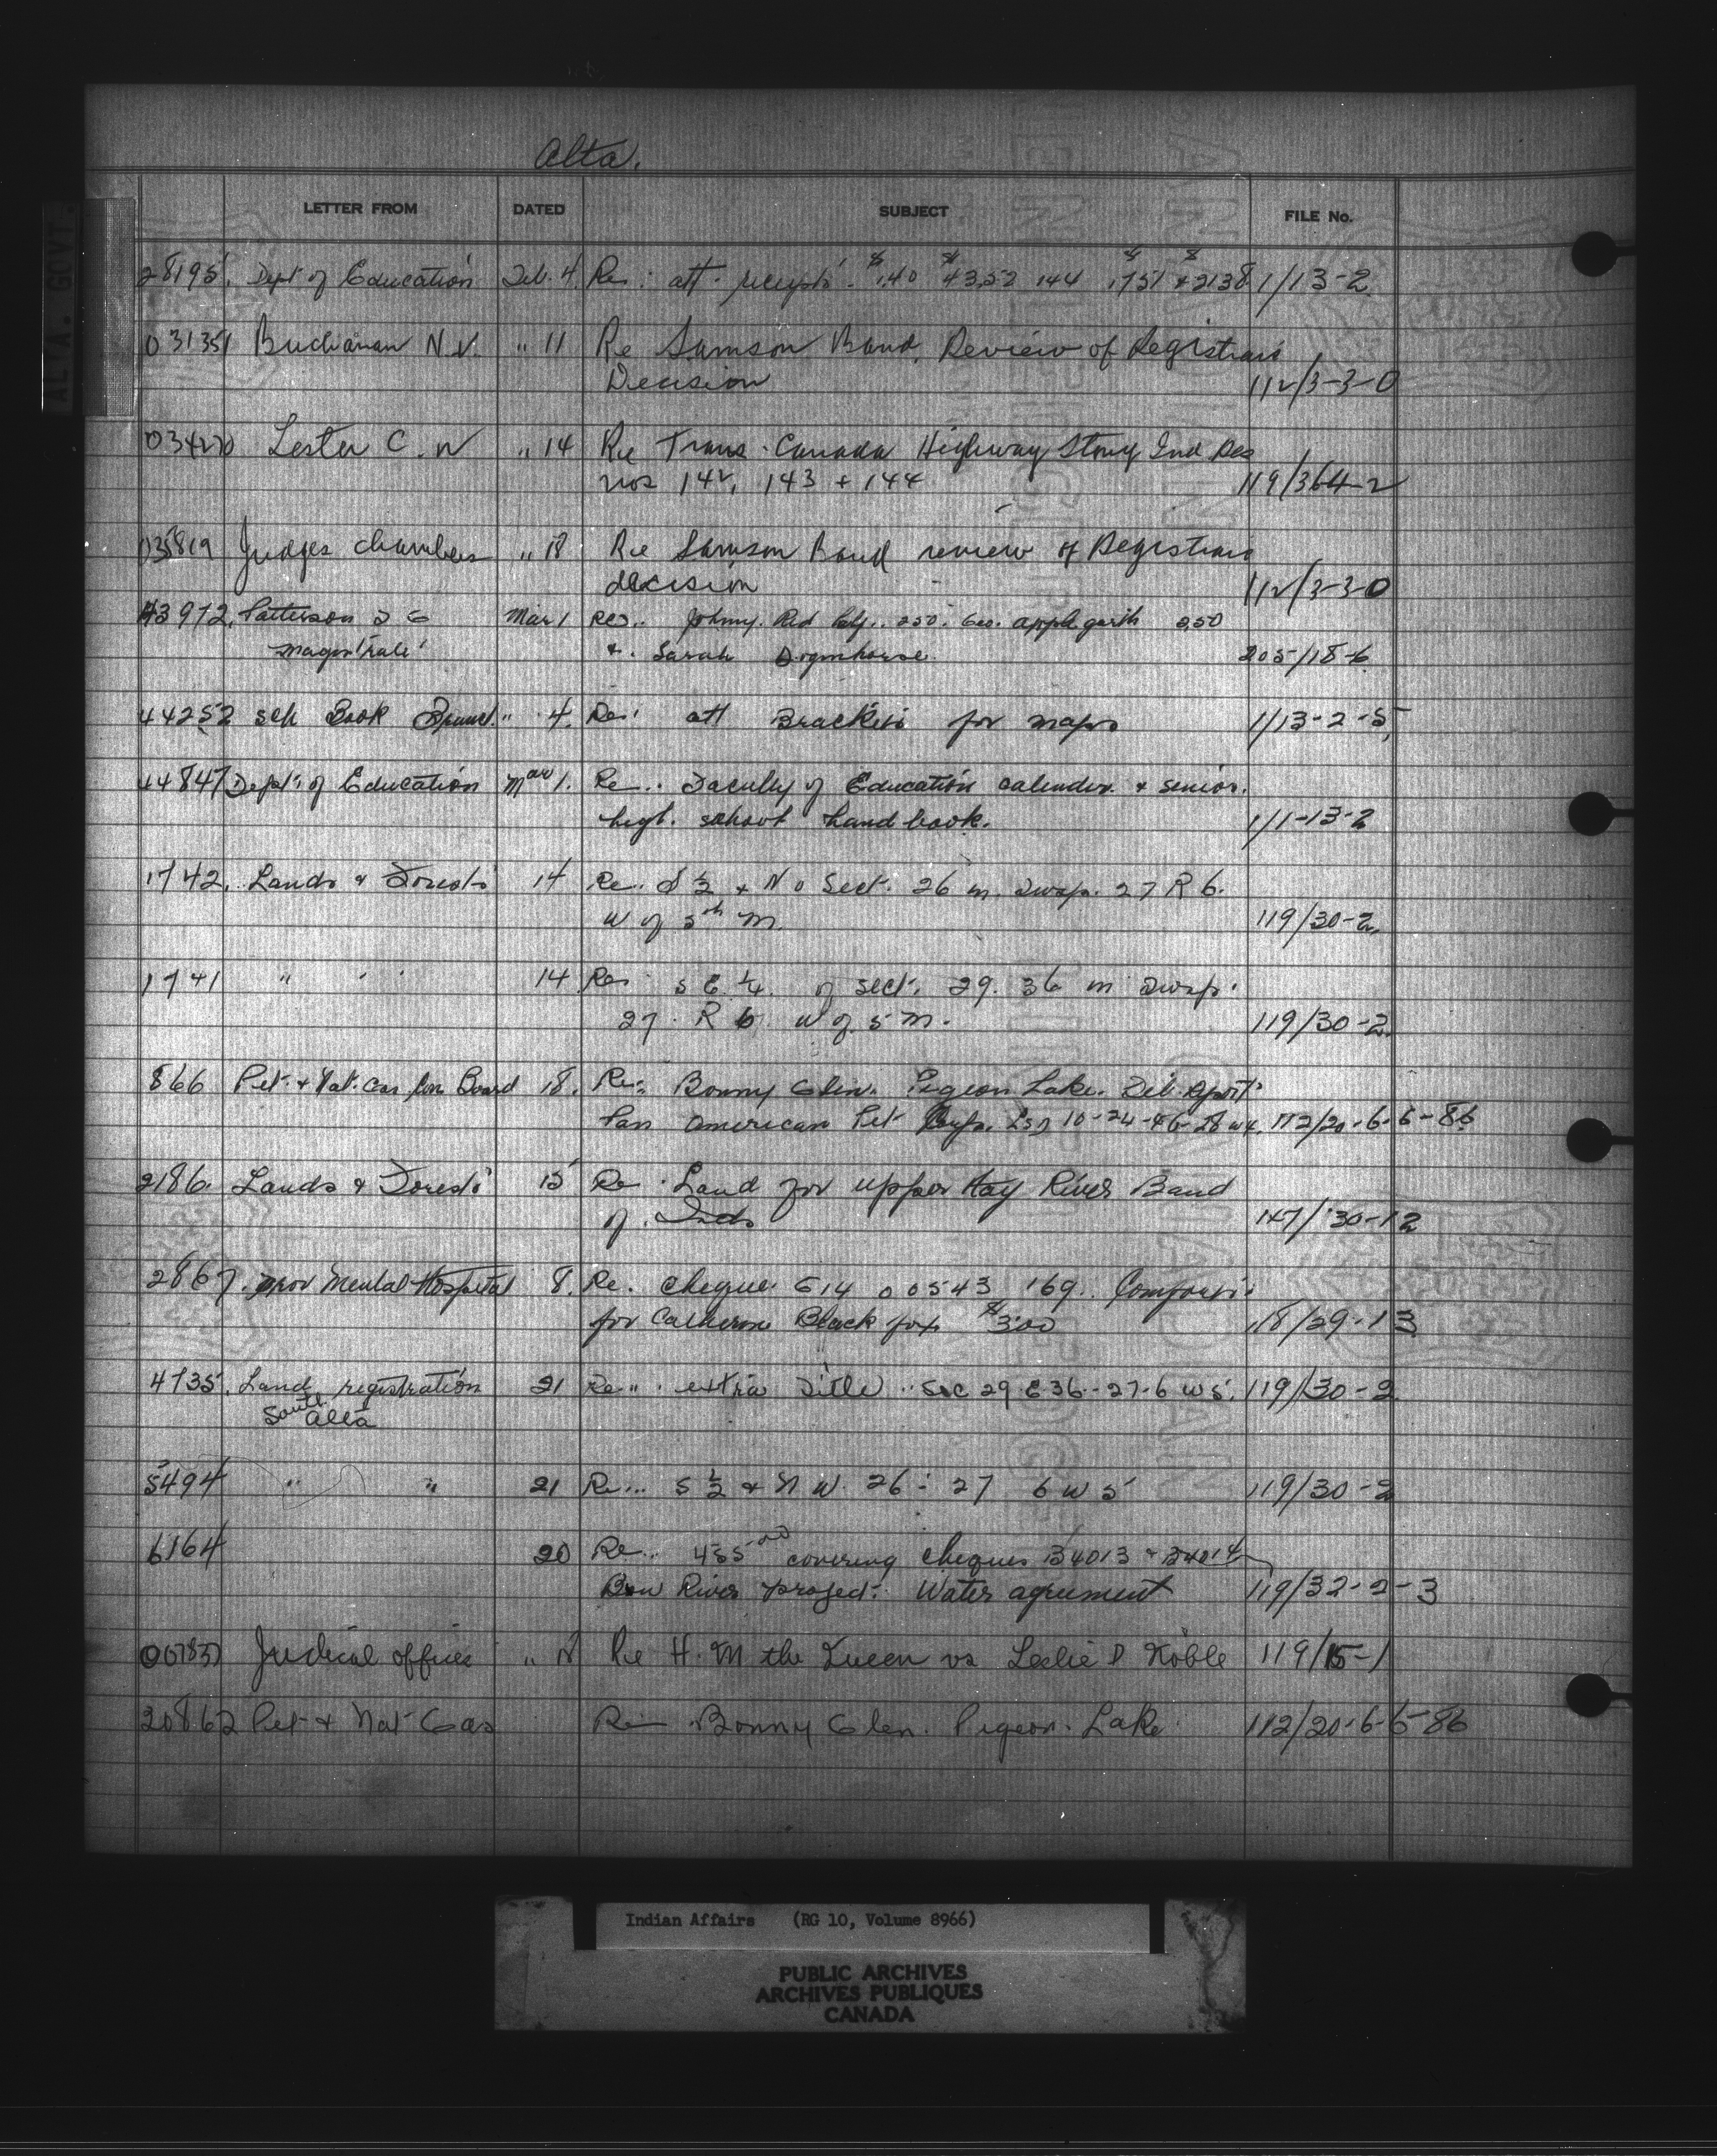 Alta.
ALTA. GOVT.
LETTER FROM DATED SUBJECT FILE No.
28195. Dept of Education Feb. 4. Re: att. receipts 1/13-2
031351 Buchanan N.V. " 11 Re Samson Band, Review of Registrars
Decision 112/3-3-0
034270 Lester C. W " 14 Re Trans-Canada Highway Stony Ind Res
nos 142, 143 + 144 119/364-2
035819 Judges chambers " 18 Re Samson Band review of Registrars
decision 112/3-3-0
43972. Patterson Mar 1 Re.. Johnny Red 250. Geo. applegarth 2.50
magistrate & Sarah 205/18-6
44252 sch Book Branch " 4. Re: att Brackets for maps 1/13-2-5
44847 Dept. of Education Mar 1. Re.. Faculty of Education calender & senior
high. school handbook. 1/1-13-2
1742. Lands & Forests 14 Re. S 1/2 + N Sect. 26 m. Twsp. 27 R 6.
W of 5th M. 119/30-2.
1741 " " 14 Re. S E 1/4. of sect. 29. 36 m Twsp.
27. R 6. W of 5 M. 119/30-2.
866 Pet. & Nat. Gas Con Board 18. Re: Bonny Glen. Pigeon Lake. report
Pan American Pet Corp. Lsd 10-24-46-28 w4. 112/20-6-6-86
2186. Lands & Forests 15 Re. Land for upper Hay River Band
of Inds 147/30-12
2867. prov Mental Hospital 8. Re. cheque 614 00543 169. Comforts
for Catherine Black fox $3.00 118/29-13
4735. Land registration 21 Re.. extra Title .. Sec 29 E 36--27-6 w 5. 119/30-2
South Alta
5494 " " 21 Re... S 1/2 & N W. 26 - 27 6 w 5 119/30-2
6164 20 Re.. covering cheques B4013 & B4014
Bow River project. Water agreement 119/32-2-3
Judicial offices " Re H. M the Queen vs Leslie P Noble 119/15-1
20862 Pet & Nat Gas Re Bonny Glen. Pigeon. Lake 112/20-6-6-86
Indian Affairs (RG 10, Volume 8966)
PUBLIC ARCHIVES
ARCHIVES PUBLIQUES
CANADA